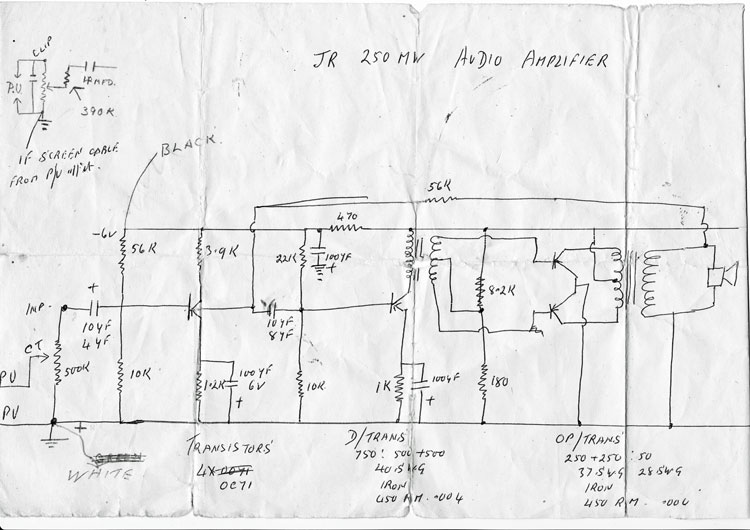 JR 250MW AUDIO AMPLIFIER
CLIP
P.U
4MFD.
390K
IF SCREEN CABLE
FROM P/U
BLACK.
56K
470
-6V
56K
3.9K
22K
100µF
+
8.2K
INP.
+
10µF
4µF
10µF
8µF
CT
500K
10K
1.2K
100µF
6V
+
10K
1K
100µF
+
180
PU
PU
+
WHITE
TRANSISTORS
4X OC71
OC71
D/TRANS
750 : 500+500
40 SWG
IRON
450 R.M. .004
OP/TRANS
250+250 : 50
37 SWG 28 SWG
IRON
450 R.M. .004